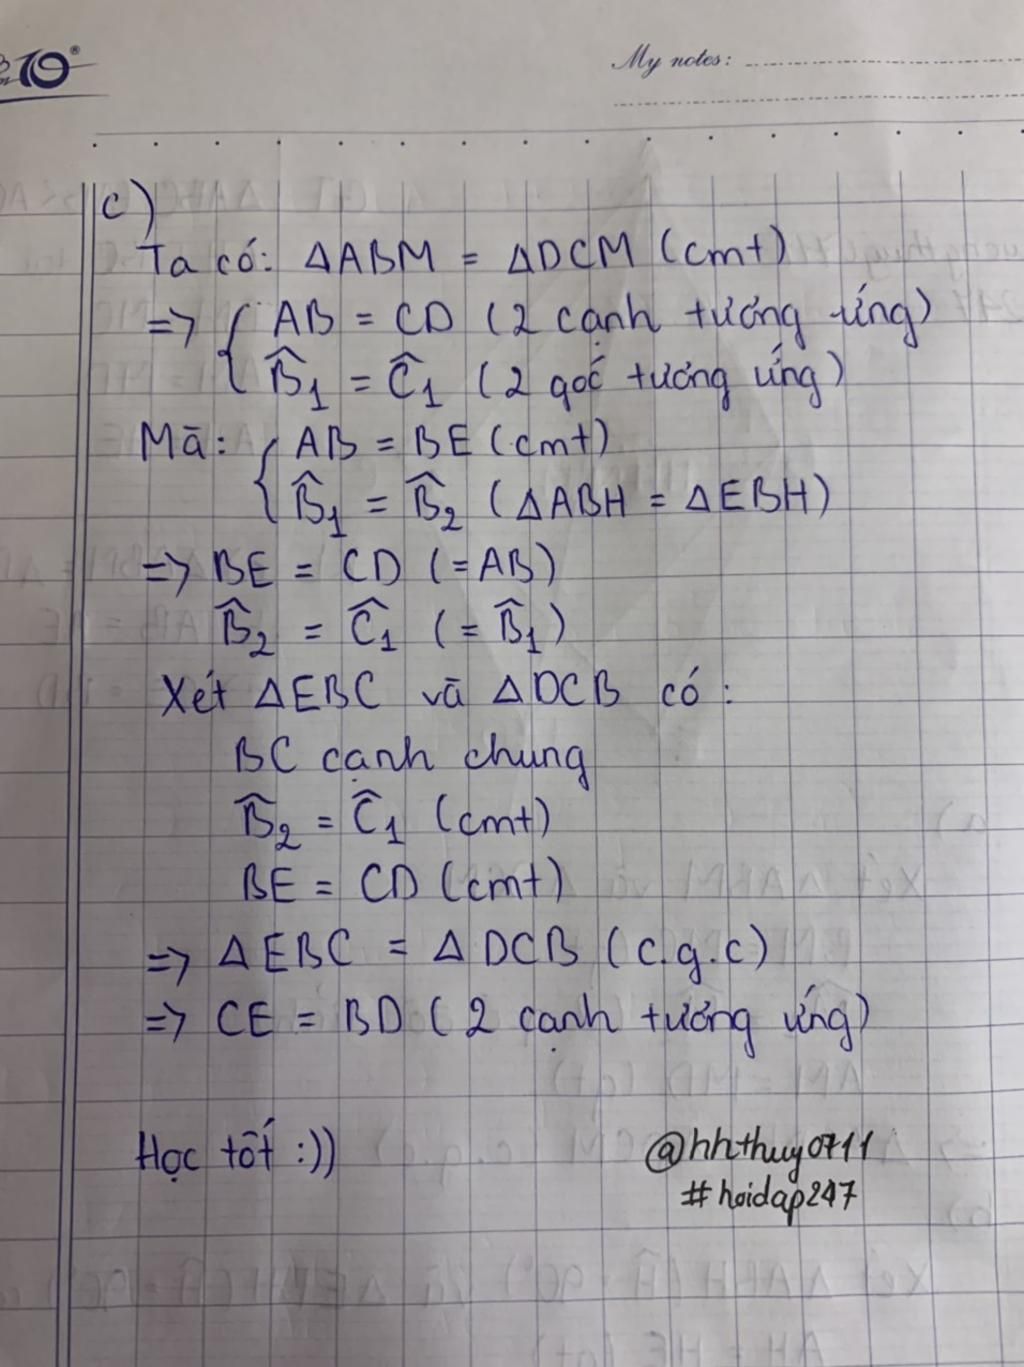 10®
My notes:
c)
Ta có: ΔABM = ΔDCM (cmt)
=> { AB = CD (2 cạnh tương ứng)
B̂₁ = Ĉ₁ (2 góc tương ứng)
Mà: { AB = BE (cmt)
B̂₁ = B̂₂ (ΔABH = ΔEBH)
=> BE = CD (=AB)
B̂₂ = Ĉ₁ (= B̂₁)
Xét ΔEBC và ΔDCB có:
BC cạnh chung
B̂₂ = Ĉ₁ (cmt)
BE = CD (cmt)
=> ΔEBC = ΔDCB (c.g.c)
=> CE = BD (2 cạnh tương ứng)
Học tốt :))
@hhthuy0711
#hoidap247